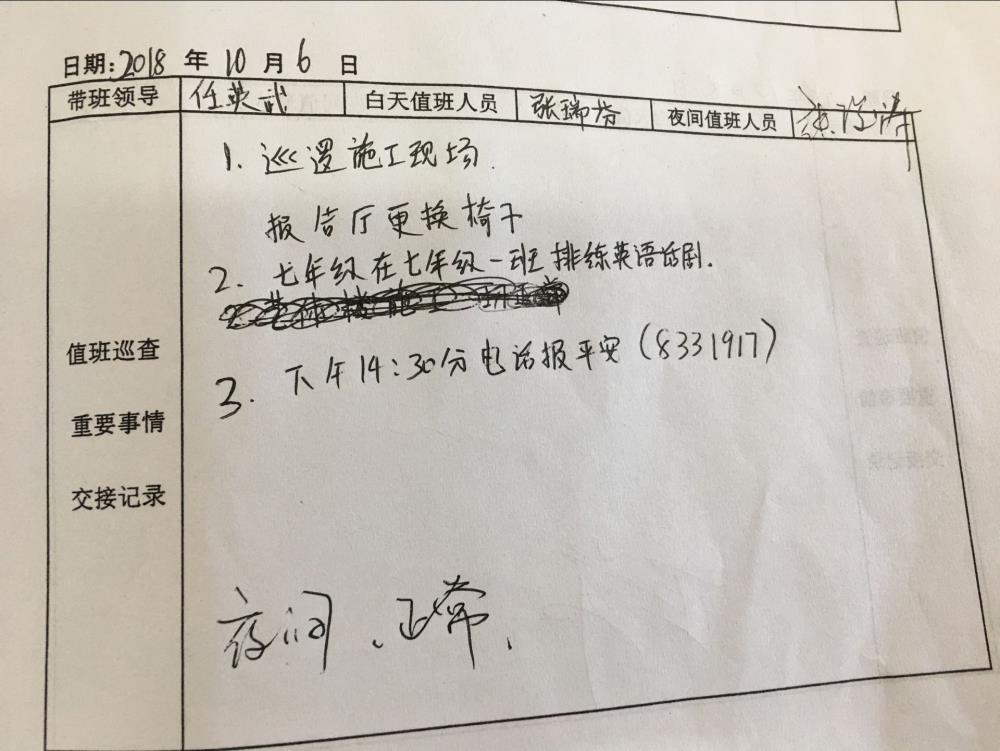 日期:2018年10月6日
带班领导 任英武 白天值班人员 张瑞芬 夜间值班人员
1. 巡逻施工现场.
报告厅更换椅子
2. 七年级在七年级一班排练英语话剧.
值班巡查
3. 下午14:30分电话报平安(8331917)
重要事情
交接记录
夜间、正常.